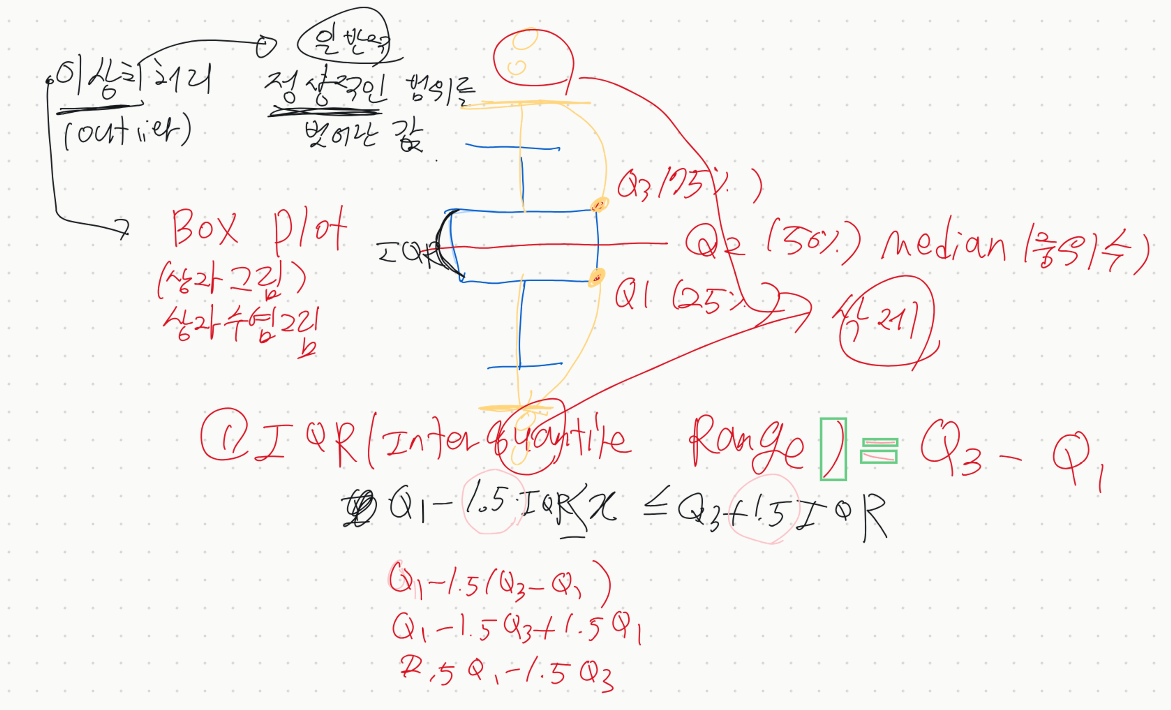 이상치 처리
(outlier)
일반적
정상적인 범위를
벗어난 값
Box plot
(상자그림)
상자수염그림
IQR
Q3 (75%)
Q2 (50%) median (중위수)
Q1 (25%)
삭제
① IQR (Inter quantile Range) = Q3 - Q1
Q1 - 1.5 IQR ≤ x ≤ Q3 + 1.5 IQR
Q1 - 1.5 (Q3 - Q1)
Q1 - 1.5 Q3 + 1.5 Q1
2.5 Q1 - 1.5 Q3